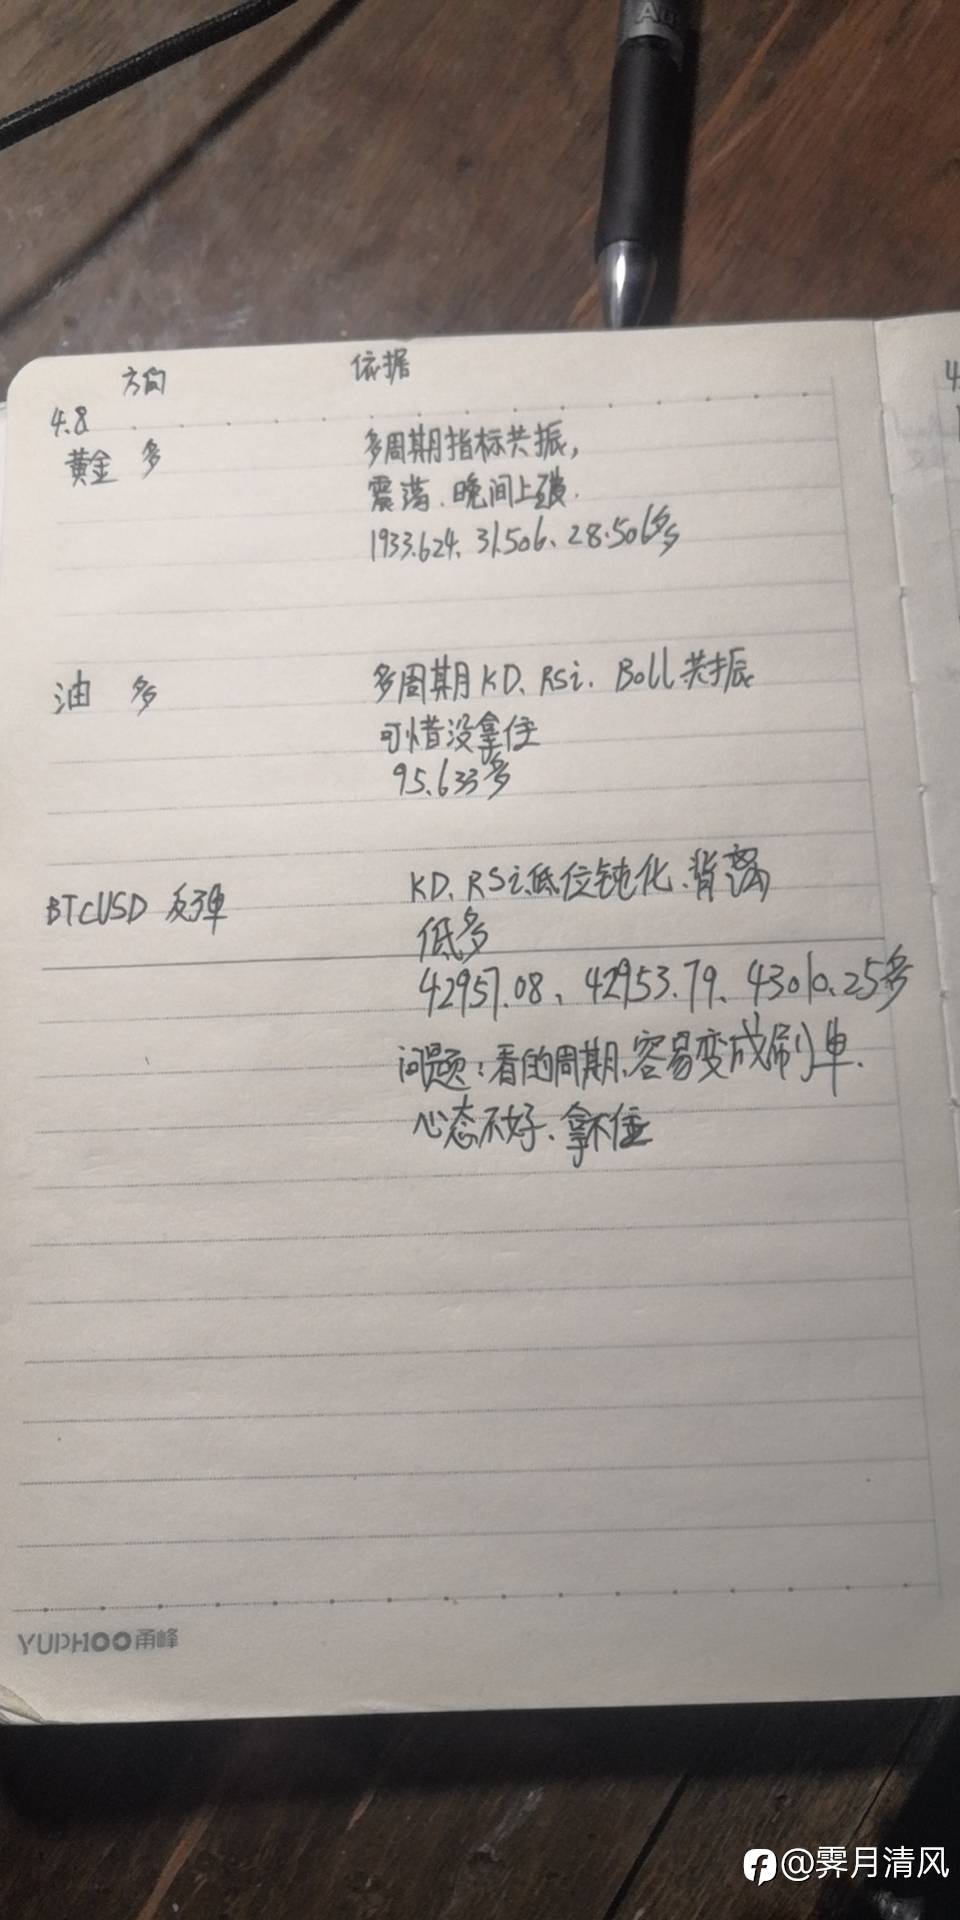 方向 依据
4.8
黄金 多 多周期指标共振,
震荡、晚间上
1933.624、31.506、28.506多
油 多 多周期KD、RSi、Boll共振
可惜没拿住
95.633多
BTCUSD 反弹 KD、RSi低位钝化、背离
低多
42957.08、42953.79、43010.25多
问题:看的周期、容易变成刷单.
心态不好、拿不住
YUPHOO甬峰
@霁月清风